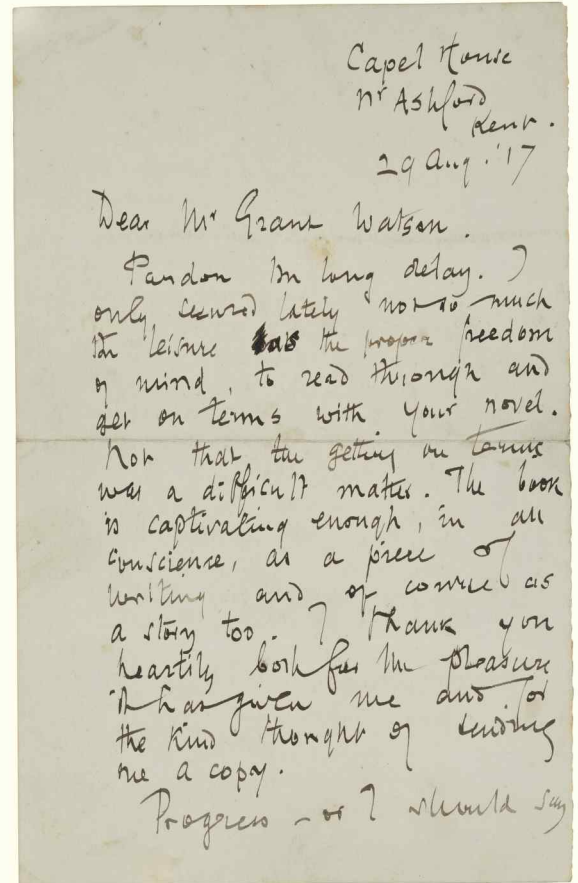 Capel House
Nr Ashford
Kent.
29 Aug. '17
Dear Mr Grant Watson.
Pardon the long delay. I
only secured lately not so much
the leisure as the proper freedom
of mind, to read through and
get on terms with your novel.
Not that the getting on terms
was a difficult matter. The book
is captivating enough, in all
conscience, as a piece of
writing and of course as
a story too. I thank you
heartily both for the pleasure
it has given me and for
the kind thought of sending
me a copy.
Progress – or I should say